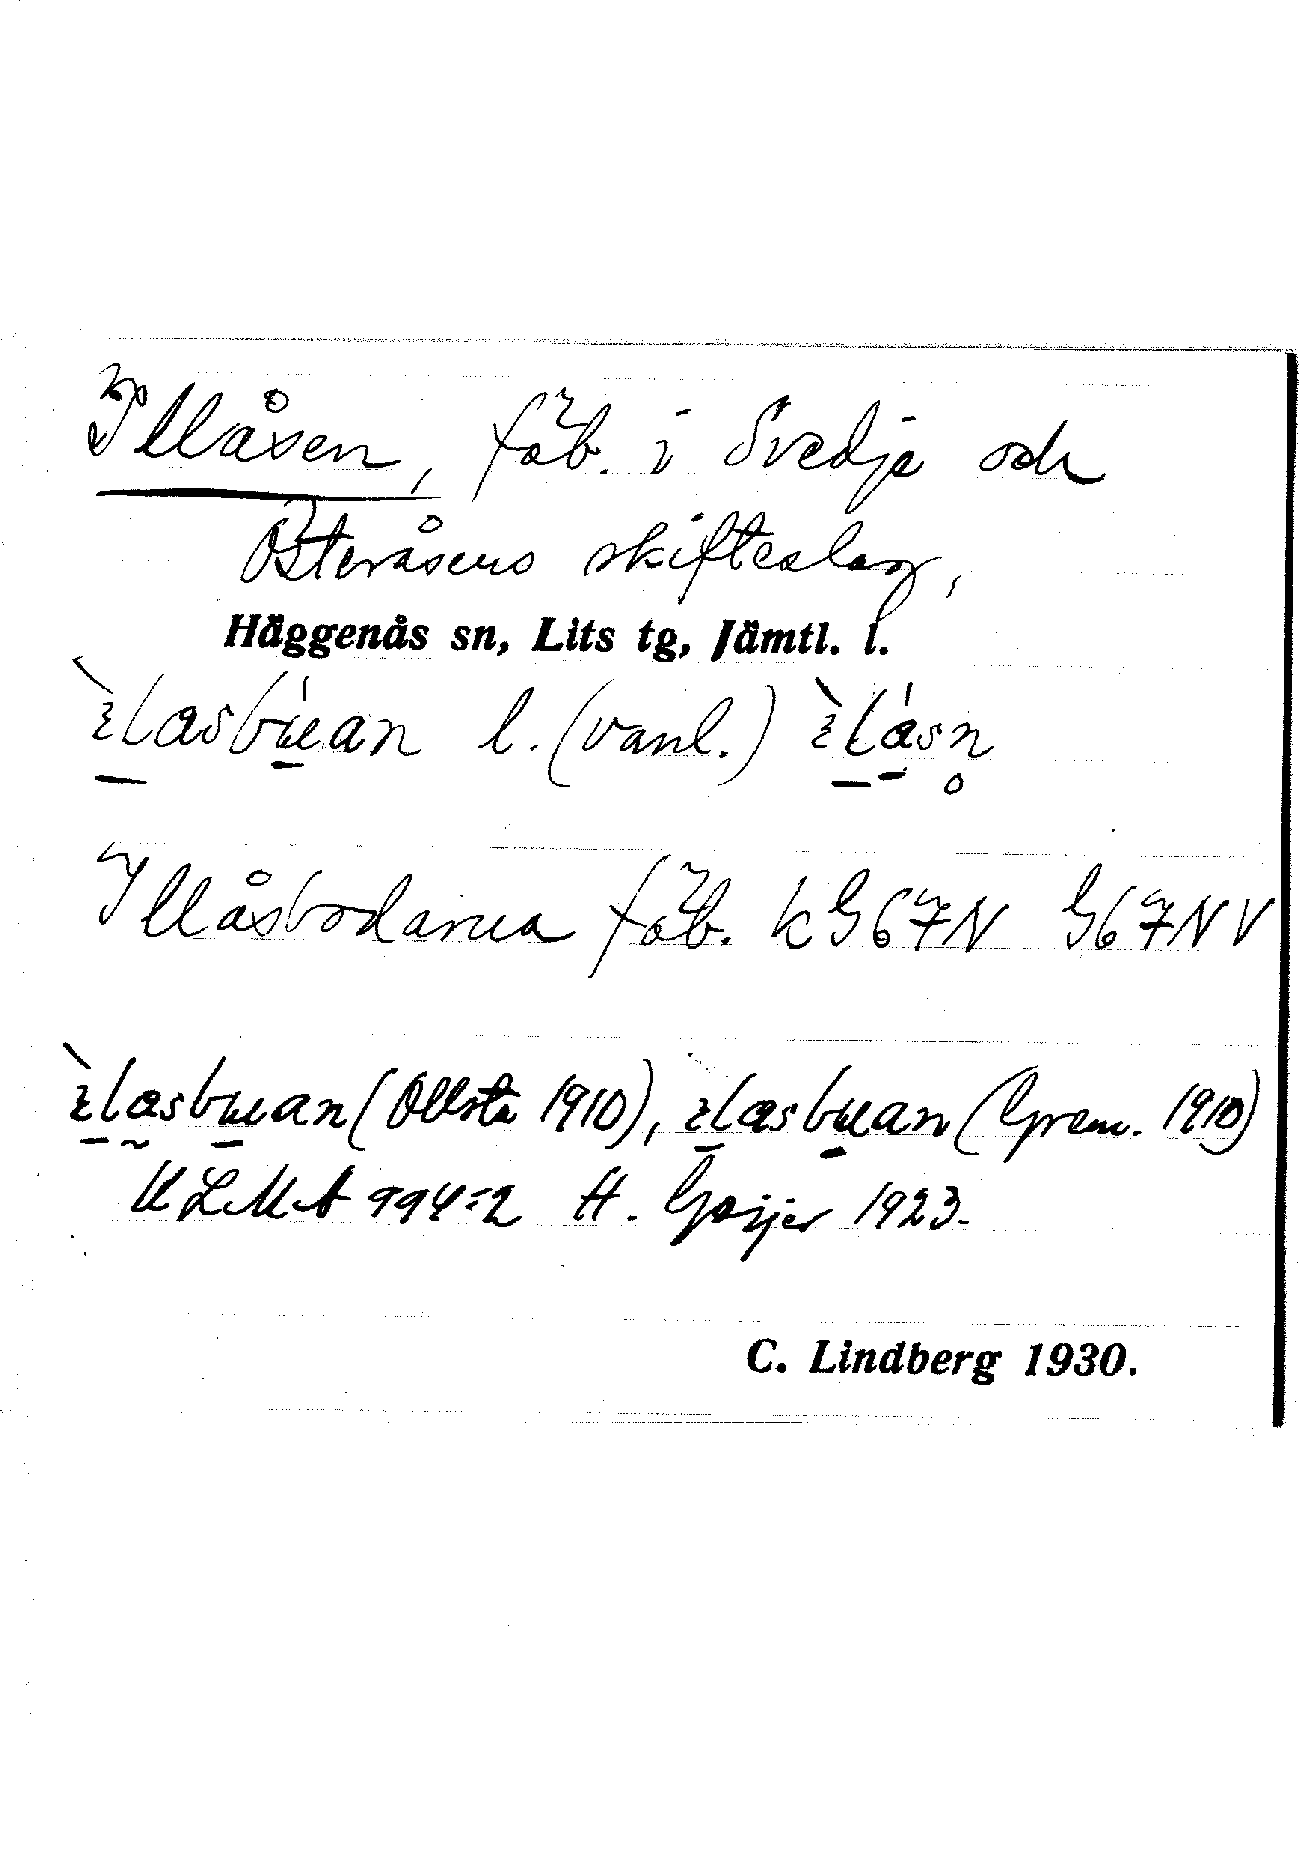 Illåsen, fäb. i Svedje och
Österåsens skifteslag,
Häggenås sn, Lits tg, Jämtl. l.
l. (vanl.)
Illåsbodarna fäb. kG67N G67NV
(Ollsta 1910), (Grem. 1910)
ULMA 994:2 H. Geijer 1923.
C. Lindberg 1930.